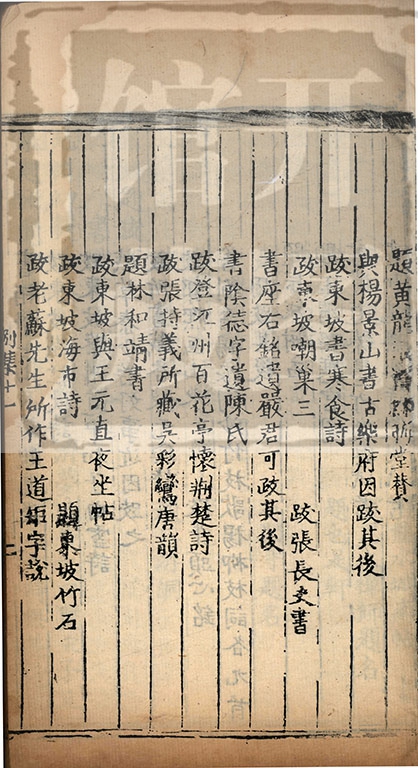 題黄龍清禪師所堂贊
與楊景山書古樂府因跋其後
跋東坡書寒食詩
跋東坡嘲巢三 跋張長史書
書座右銘遺嚴君可跋其後
書陰德字遺陳氏
跋登江州百花亭懷荆楚詩
跋張持義所藏吳彩鸞唐韻
題林和靖書
跋東坡與王元直夜坐帖
跋東坡海市詩 題東坡竹石
跋老蘇先生所作王道矩字說
別集十一